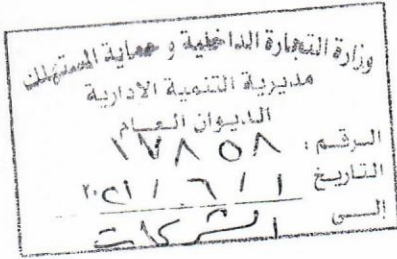 وزارة التجارة الداخلية و حماية المستهلك
مديرية التنمية الادارية
الديوان العام
الرقم : ١٧٨٥٨
التاريخ ١ / ٦ / ٢٠٢١
إلى الشركات